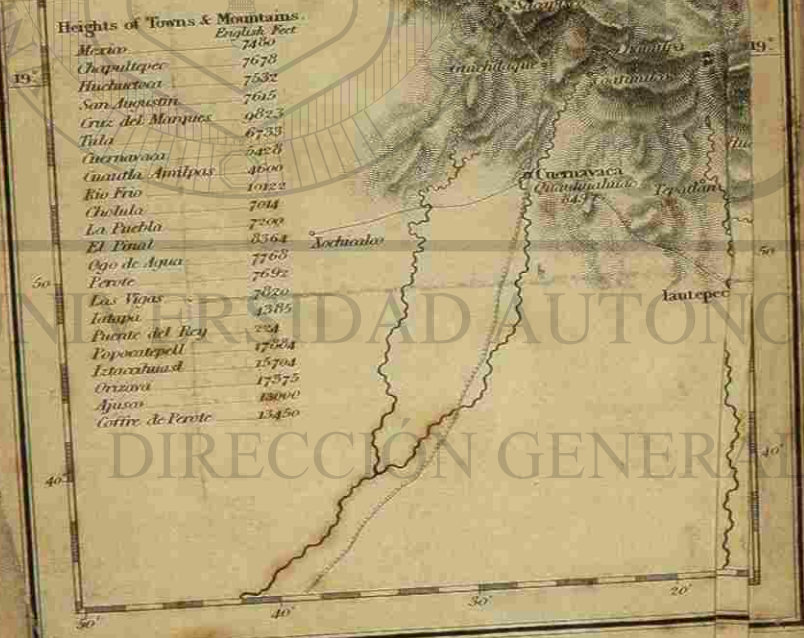 Heights of Towns & Mountains.
English Feet
Mexico 7480
Chapultepec 7678
Huehuetoca 7532
San Augustin 7615
Cruz del Marques 9823
Tula 6733
Cuernavaca 5428
Cuautla Amilpas 4600
Rio Frio 10122
Cholula 7014
La Puebla 7200
El Pinal 8364
Ojo de Agua 7768
Perote 7692
Las Vigas 7820
Puente del Rey 224
Popocatepetl 17884
Iztaccihuatl 15704
Orizava 17375
Ajusco
Coffre de Perote 13450
19°
19°
Cuernavaca
Tepotlan
Xochicalco
50
50
Iautepec
UNIVERSIDAD AUTONO
DIRECCIÓN GENERAL
40
40'
50'
40'
30'
20'